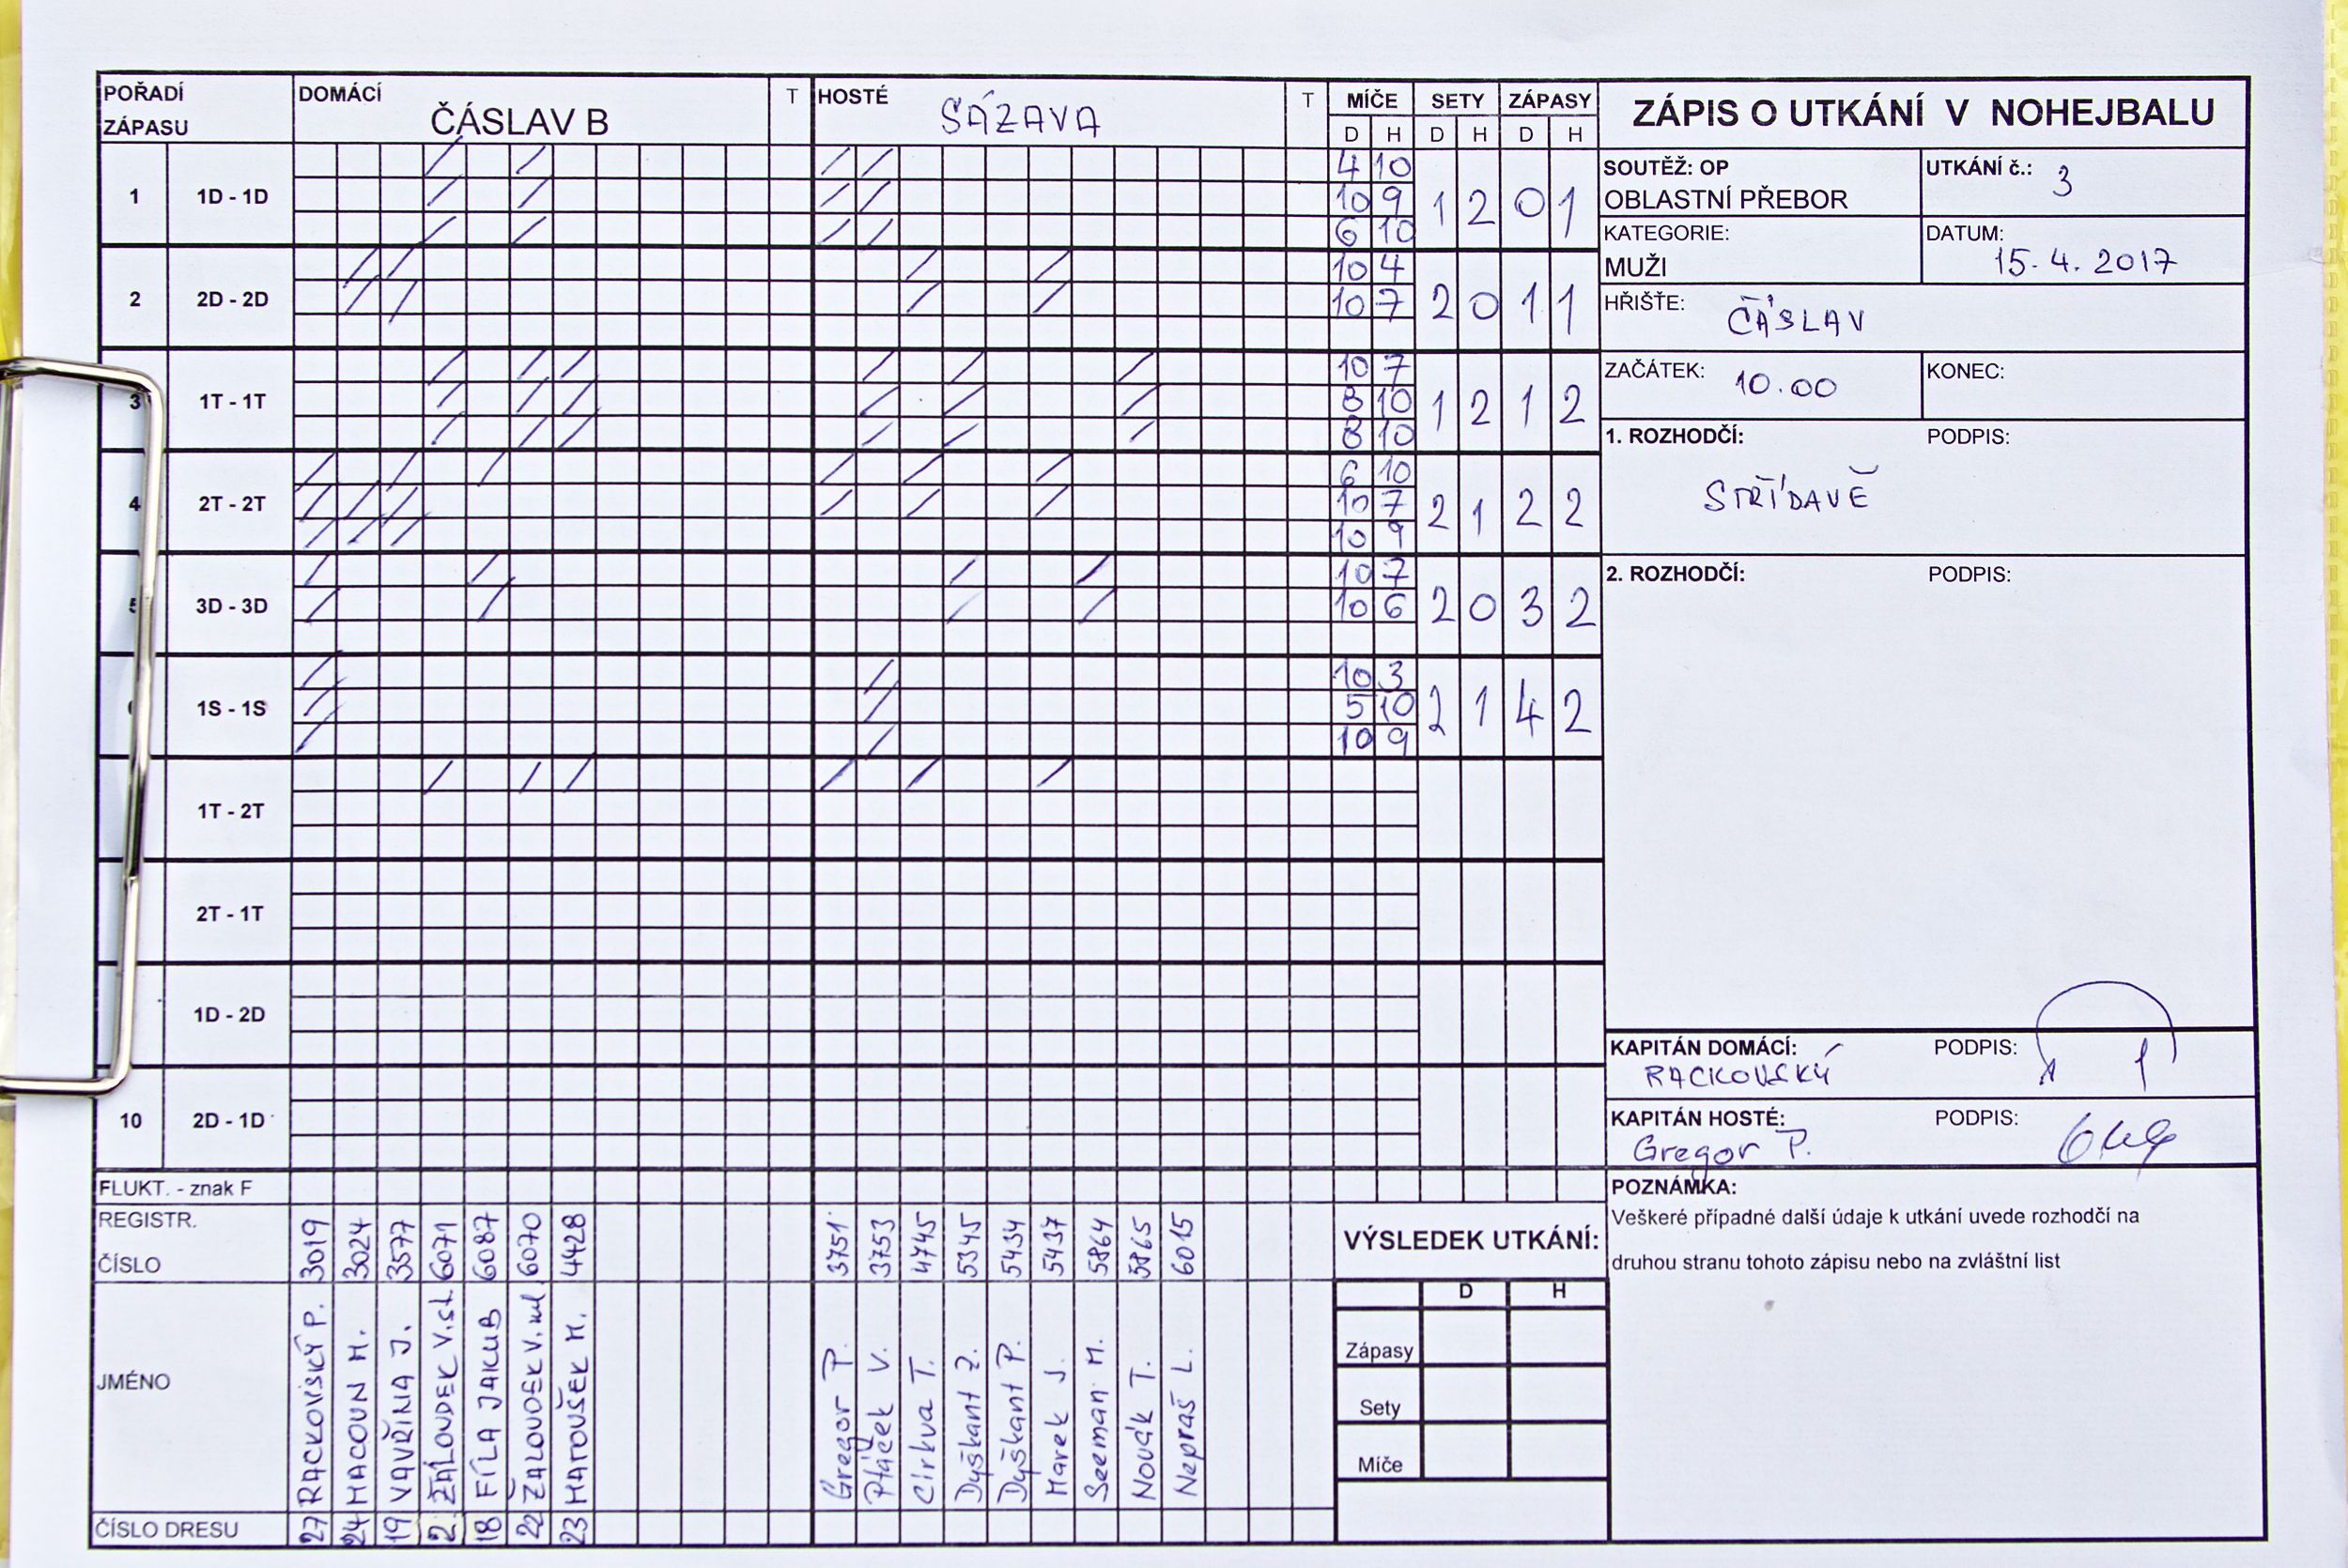 POŘADÍ ZÁPASU DOMÁCÍ ČÁSLAV B T HOSTÉ SÁZAVA T MÍČE SETY ZÁPASY
D H D H D H
ZÁPIS O UTKÁNÍ V NOHEJBALU
SOUTĚŽ: OP
OBLASTNÍ PŘEBOR
UTKÁNÍ č.: 3
KATEGORIE:
MUŽI
DATUM:
15.4.2017
HŘIŠTĚ: ČÁSLAV
ZAČÁTEK: 10.00
KONEC:
1. ROZHODČÍ: PODPIS:
STŘÍDAVĚ
2. ROZHODČÍ: PODPIS:
1 1D - 1D
4 10
10 9
6 10
1 2 0 1
2 2D - 2D
10 4
10 7
2 0 1 1
3 1T - 1T
10 7
8 10
8 10
1 2 1 2
4 2T - 2T
6 10
10 7
10 9
2 1 2 2
5 3D - 3D
10 7
10 6
2 0 3 2
1S - 1S
10 3
5 10
10 9
2 1 4 2
1T - 2T
2T - 1T
1D - 2D
10 2D - 1D
KAPITÁN DOMÁCÍ: PODPIS:
RACKOVSKÝ
KAPITÁN HOSTÉ: PODPIS:
Gregor P.
FLUKT. - znak F
REGISTR.
ČÍSLO
3019 3024 3577 6071 6087 6070 4428 3751 3753 4745 5345 5434 5437 5864 5865 6015
JMÉNO
RACKOVSKÝ P.
MACOUN M.
VAVŘINA J.
ŽALOUDEK V.st.
FÍLA JAKUB
ŽALOUDEK V.ml
MATOUŠEK M.
Gregor P.
Ptáček V.
Církva T.
Dyškant Z.
Dyškant P.
Marek J.
Seeman M.
Novák T.
Nepraš L.
ČÍSLO DRESU
27 24 19 2 18 22 23
VÝSLEDEK UTKÁNÍ:
D H
Zápasy
Sety
Míče
POZNÁMKA:
Veškeré případné další údaje k utkání uvede rozhodčí na
druhou stranu tohoto zápisu nebo na zvláštní list